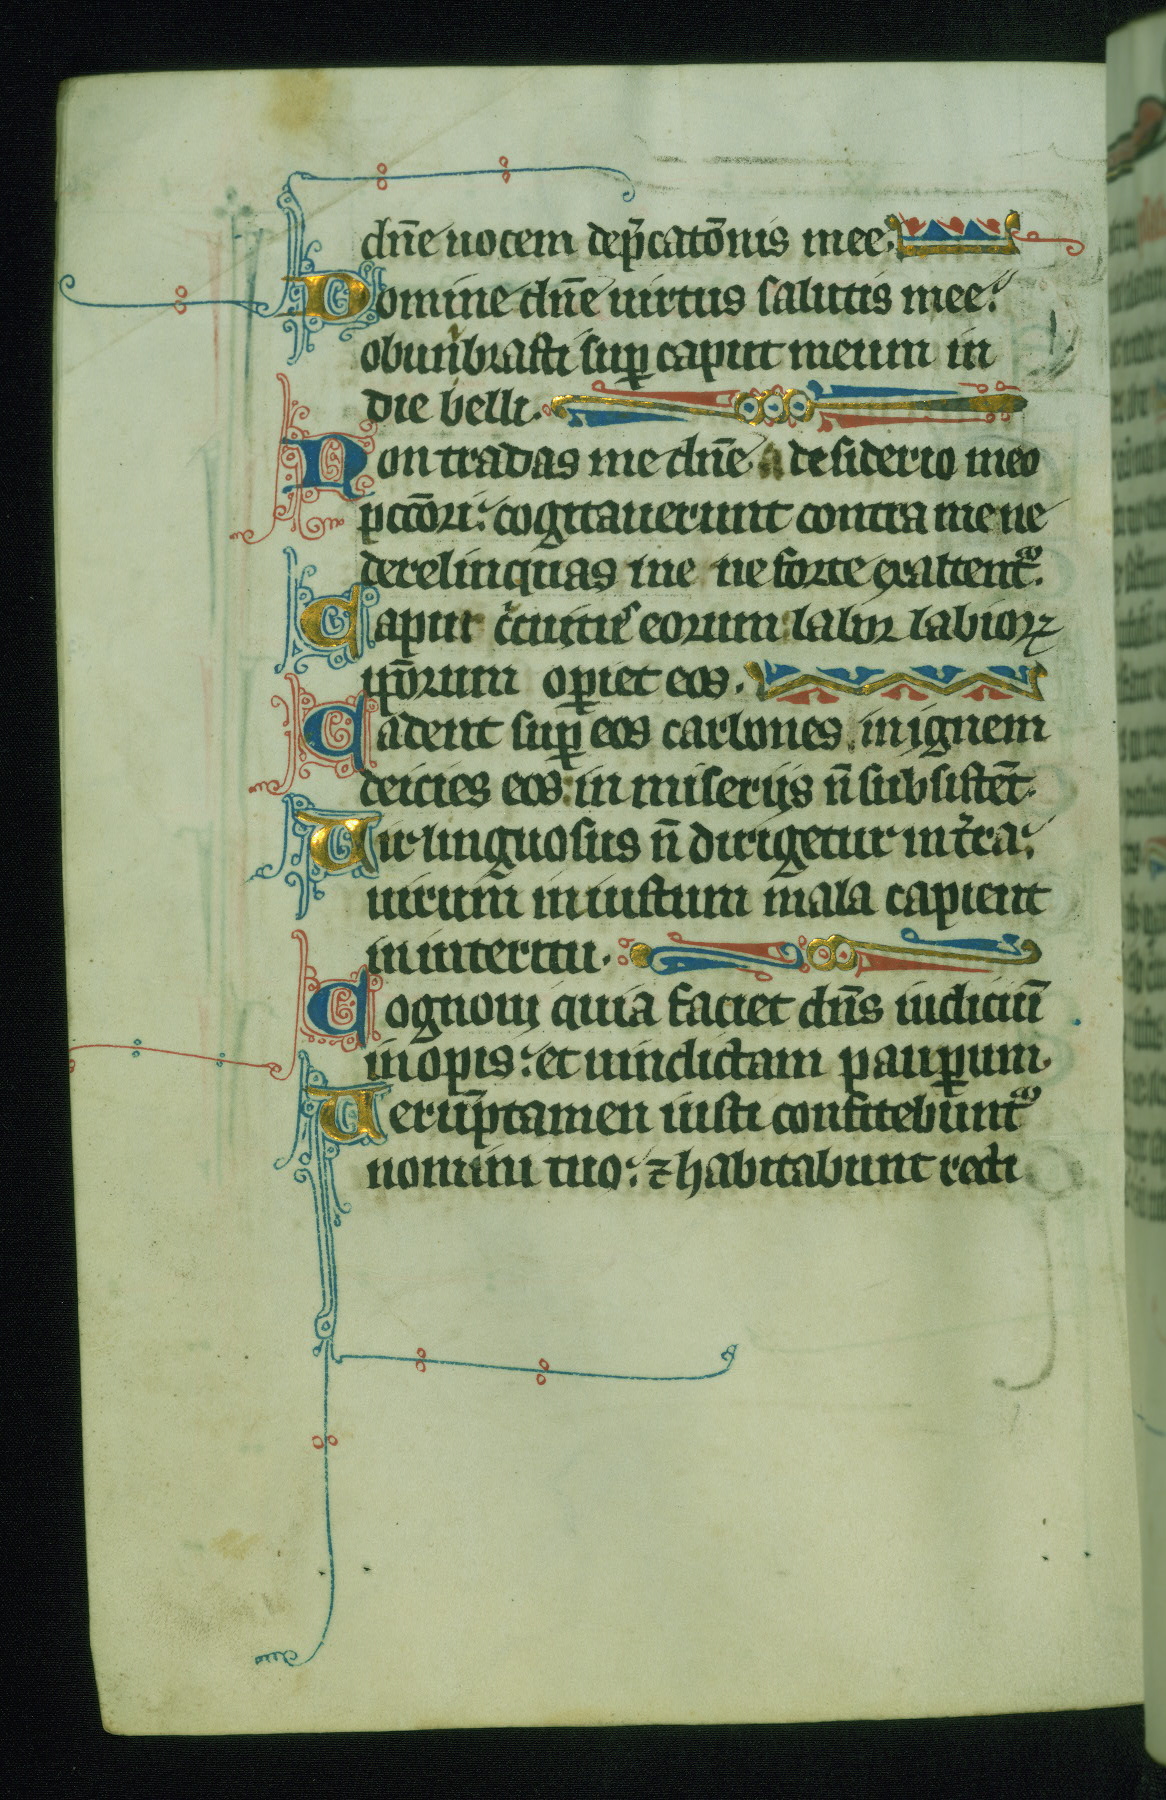 dn̄e uocem dep̄catōnis mee.
Domine dn̄e uirtus salutis mee:
obumbrasti sup̱ caput meum in
die belli.
Non tradas me dn̄e a desiderio meo
pctōri: cogitauerunt contra me ne
derelinquas me ne forte exaltentᷓ.
Caput c̾cuitus eorum labor labioꝝ
ip̄orum op̱iet eos.
Cadent sup̱ eos carbones in ignem
deicies eos: in miserijs n̄ subsistēt.
Uir linguosus n̄ dirigetur in t̾ra:
uirum iniustum mala capient
in interitu.
Cognoui quia faciet dn̄s iudiciū
inopis: et uindictam paup̱um.
Uerūptamen iusti confitebuntᷓ
nomini tuo: ⁊ habitabunt recti